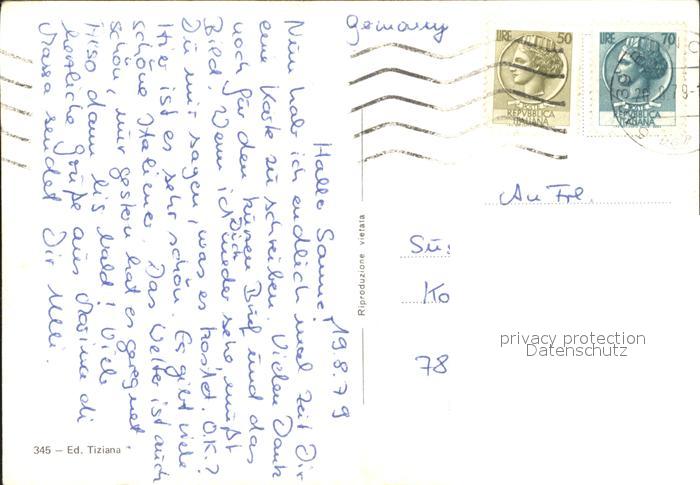 Germany
LIRE 50
REPVBBLICA
ITALIANA
LIRE 70
REPVBBLICA
ITALIANA
19.8.79
Hallo Sanne!
Nun hab ich endlich mal Zeit Dir
eine Karte zu schreiben. Vielen Dank
noch für den kurzen Brief und das
Bild. Wenn ich Dich wieder sehe mußt
Du mir sagen, was es kostet. O.K.?
Hier ist es sehr schön. Es gibt viele
schöne Italiener. Das Wetter ist auch
schön, nur gestern hat es geregnet.
Also dann bis bald! Viele
herzliche Grüße aus Marina di
Massa sendet Dir Ulli.
Riproduzione vietata
An Frl.
Sü:
Ko
78
privacy protection
Datenschutz
345 — Ed. Tiziana